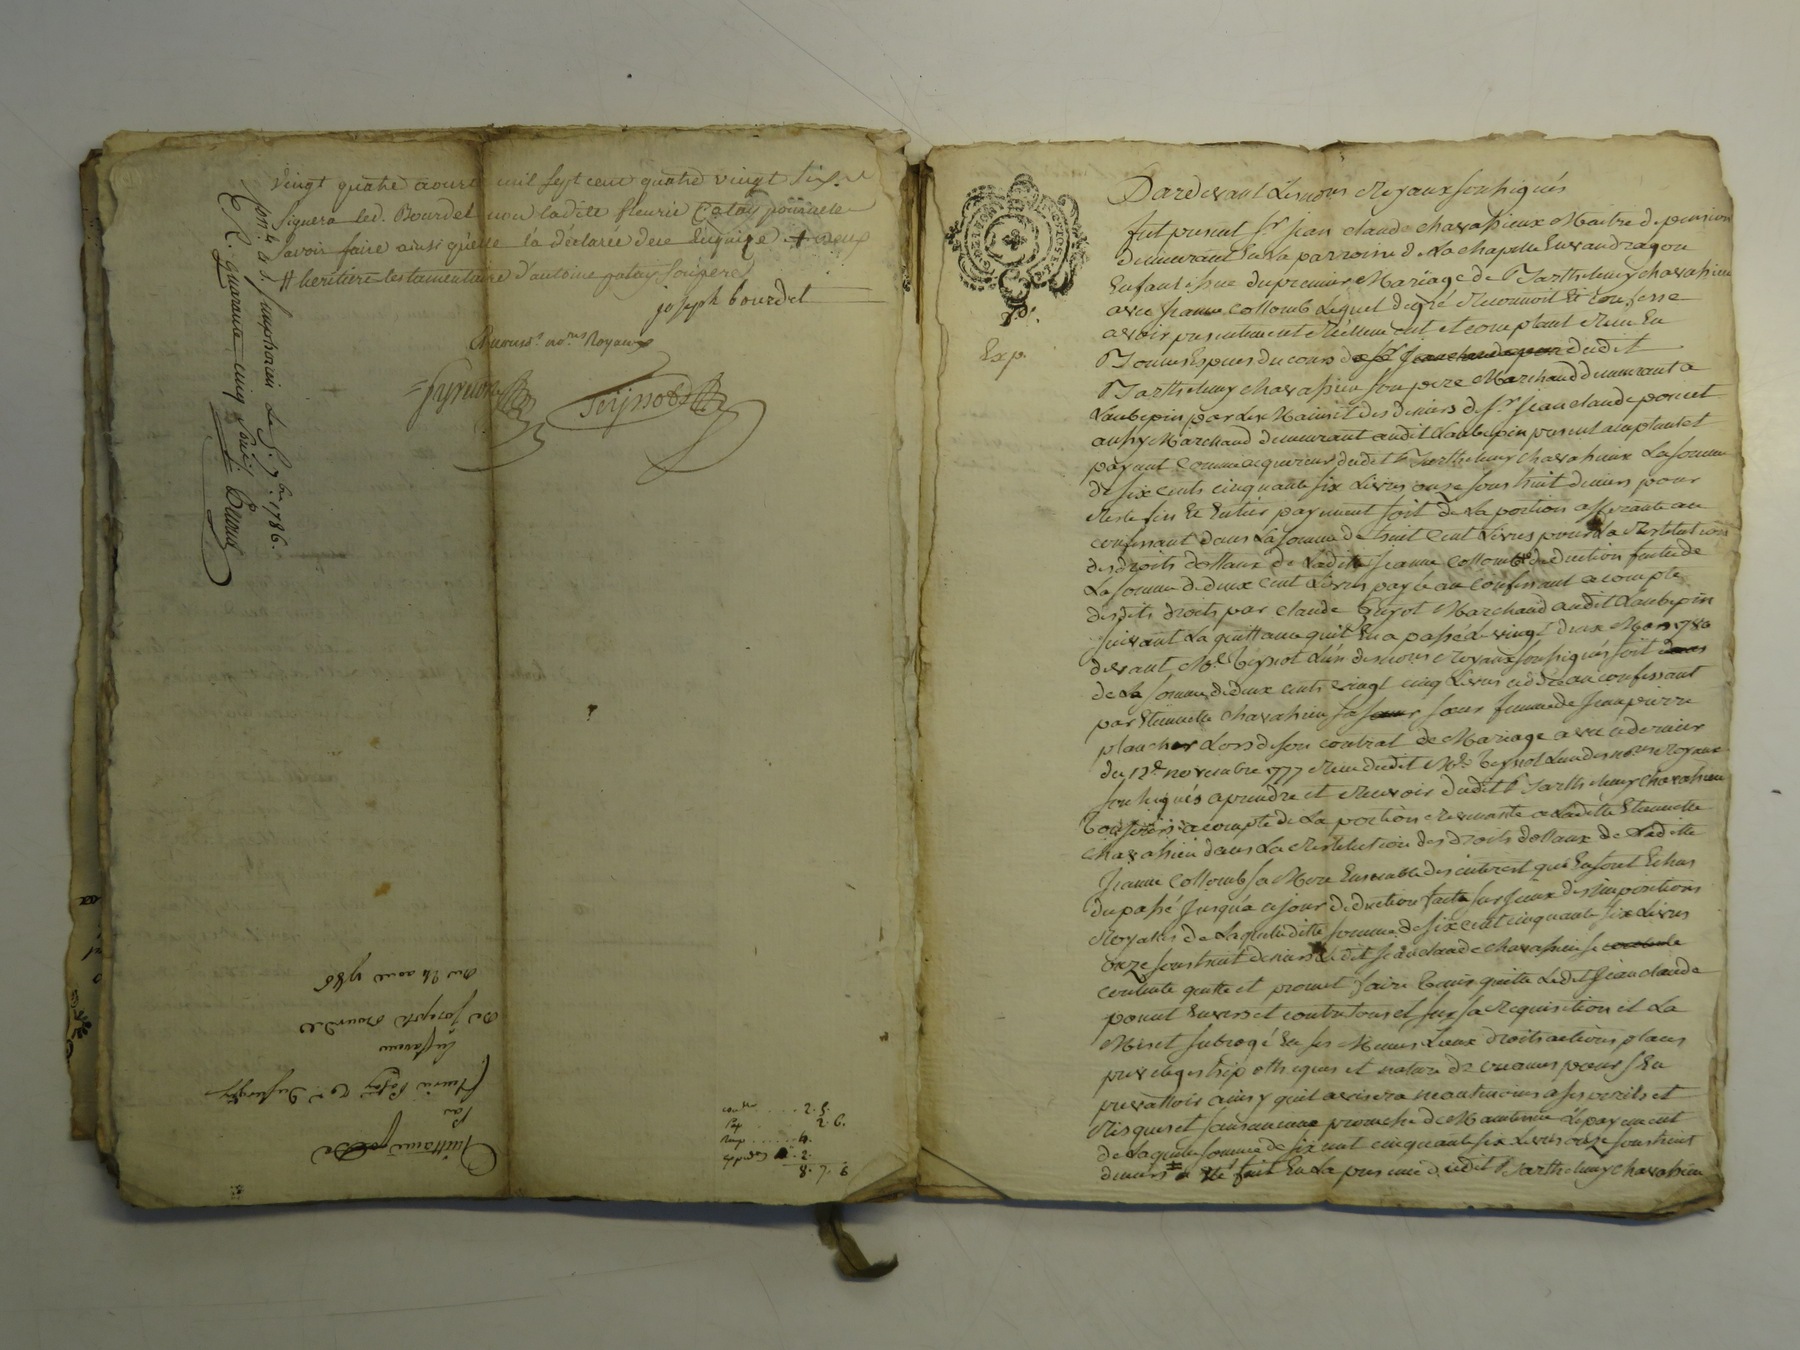 vingt quatre aoust mil sept cent quatre vingt six. et
signera led. Bourdel non ladite fleurie pour ne le
Savoir faire ainsi qu'elle l'a déclarée de ce requize
# heritiere testamentaire d'antoine son pere
joseph bourdel
no.res Royaux
Teynot
Con.lé à S. Simphorien Le 7bre 1786.
R. quarante cinq sous
Quittance
par
En faveur
De Joseph Bourdel
Du 24 aout 1786
2. 5.
2. 6.
4.
2.
8. 7. 9
Pardevant Les no.res Royaux soussignés
fut present Sr. Jean claude chavassieux Maitre de pension
demeurant En La parroisse de La chapelle En vaudragon
Enfant issue du premier Mariage de Barthelemy chavassieu
avec Jeanne Collomb Lequel de gré Reconnoit Et confesse
avoir presentement Réellement et comptant Reçu En
Exp.
Bonnes Espèces du cours dudit
Barthelemy chavassieu son pere Marchand demeurant a
Laubepin par Les Mains et des deniers de Sr. Jean claude poncet
aussy Marchand demeurant audit Laubepin present acceptant et
payant comme acquereur dudit Barthelemy chavassieux La somme
de six cents cinquante six Livres onze sous huit deniers pour
Reste fin Et Entier payement soit de La portion afferante au
confessant dans La somme de huit Cent Livres pour La Restitution
des droits dottaux de Ladite Jeanne Collomb deduction faite de
La somme de deux cent Livres payée au Confessant a compte
desdits droits par claude Guyot Marchand audit Laubepin
suivant La quittance qu'il En a passé Le vingt deux Mars 1780
devant Me. Teynot L'un des no.res Royaux soussignés soit
de La somme de deux cents vingt cinq Livres cédée au confessant
par Etiennette chavassieu sa sœur femme de Jean pierre
plancher Lors de son contrat de Mariage avec ce dernier
du 12e. novembre 1777 Reçu dudit Me. Teynot L'un des no.res Royaux
soussignés a prendre et Recevoir dudit Barthelemy chavassieu
a compte de La portion Revenante a Ladite Etiennette
chavassieu dans La Restitution des droits dottaux de Ladite
Jeanne Collomb sa Mere Ensemble des interest qui En sont Echus
du passé Jusqu'a ce jour deduction faite sur Iceux des impositions
Royales de Laquelle ditte somme de six cent cinquante six Livres
onze sous huit deniers Ledit Jean claude chavassieu se
contente quitte et promet faire tenir quitte Ledit Jean claude
poncet Envers et contre tous et sur sa Requisition et La
Mis et subrogé En ses Memes Lieux droits actions places
privileges hipotheques et nature de creances pour S'En
prevalloir ainsy qu'il avisera neantmoins a ses perils et
Risques et sans aucune promesse de Maintenue Le payement
de Laquelle somme de six cent cinquante six Livres onze sous huit
deniers a Eté fait En La presence dudit Barthelemy chavassieu